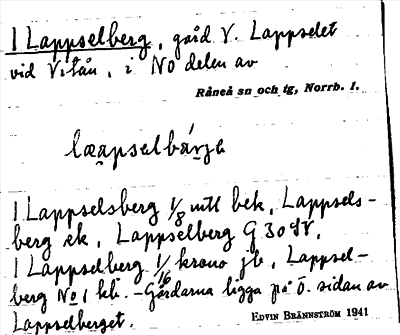 1 Lappselberg, gård V. Lappselet
vid Vitån, i NO delen av
Råneå sn och tg, Norrb. l.
1 Lappselsberg 1/8 mtl bek, Lappsels-
berg ek, Lappselberg G 30 SV.
1 Lappselberg 1/16 krono jb, Lappsel-
berg No 1 kli. - Gårdarna ligga på ö. sidan av
Lappselberget.
EDVIN BRÄNNSTRÖM 1941